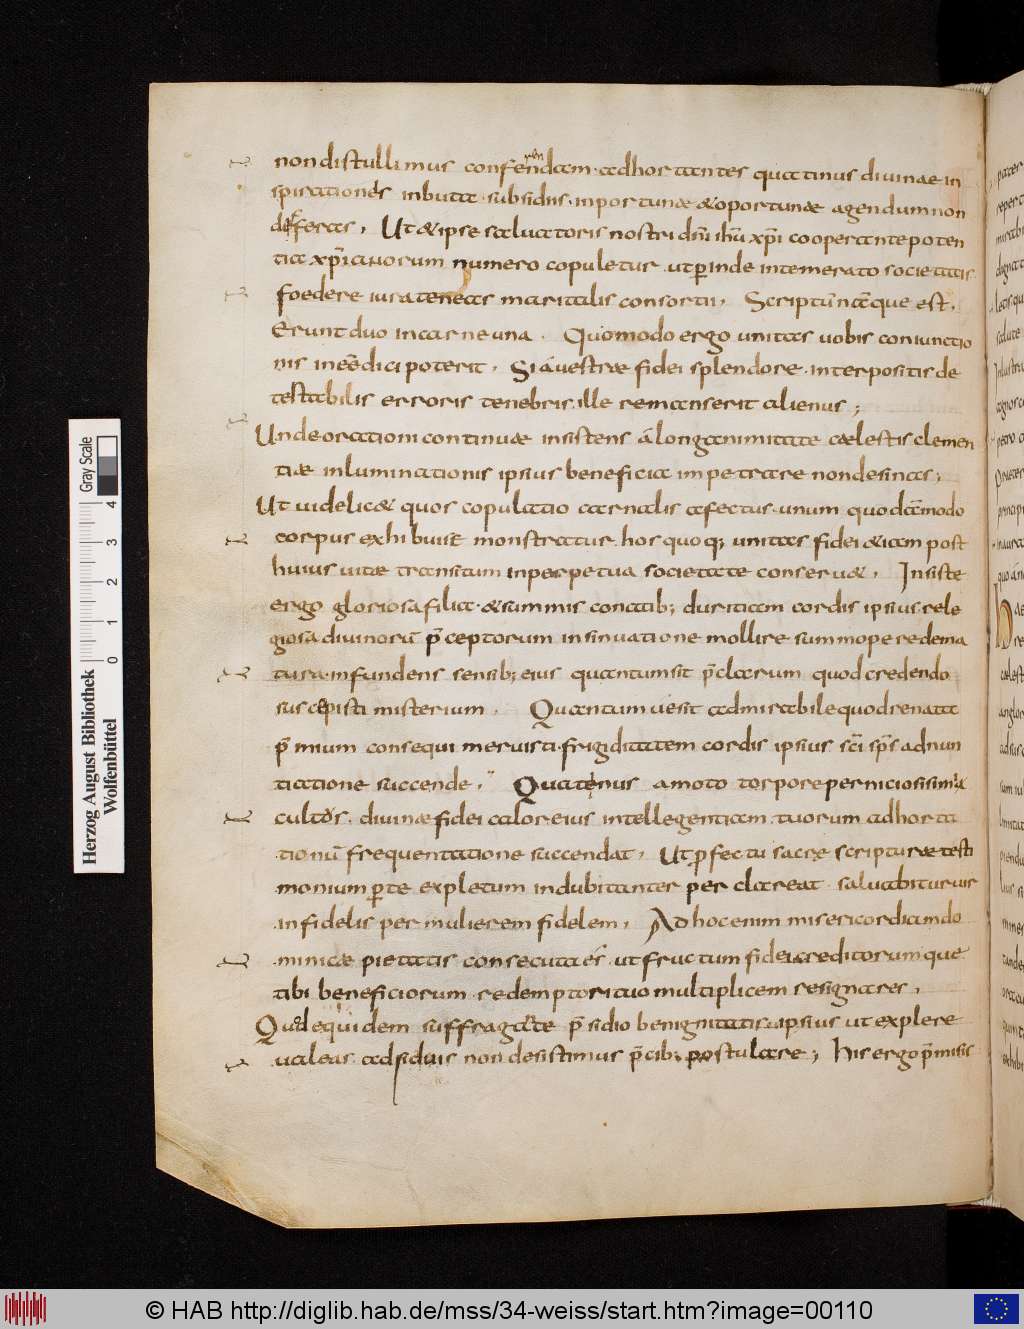 non distullimus conferendam · adhortantes quatinus divinae in
spirationis inbuta · subsidiis · inportunae &oportunae agendum non
differas, Ut &ipse saluatoris nostri dni ihu xpi cooperante poten
tia xpianorum numero copuletur · ut pinde intemerato societatis
foedere iura teneas maritalis consortii, Scriptu namque est,
Erunt duo in carne una · Quomodo ergo unitas uobis coniunctio
nis inee dici poterit, Si a uestrae fidei splendore · interpositis de
testabilis erroris tenebris ille remanserit alienus;
Unde orationi continuae insistens a longanimitate caelestis clemen
tiae inluminationis ipsius beneficia impetrare non desinas;
Ut uidelic& quos copulatio carnalis afectus · unum quodammodo
corpus exhibuisse monstratur · hos quoq; unitas fidei &iam post
huius uitae transitum in perpetua societate conseru&, Insiste
ergo gloriosa filia · &summis conatib; duritiam cordis ipsius rele
giosa divinorum pceptorum insinuatione mollire summopere dema
tura · infundens sensib; eius quantum sit pclarum quod credendo
suscepisti misterium, Quantum ue sit admirabile quod renata
pmium consequi meruisti · frigiditatem cordis ipsius sci sps adnun
tiatione succende, Quatenus amoto torpore perniciosisimi
cultus · divinae fidei calor eius intellegentiam · tuorum adhorta
tionum frequentatione succendat, Ut pfecta sacrae scripturae testi
monium p te expletum indubitanter per clareat · saluabitur uir
infidelis per mulierem fidelem, Ad hoc enim misericordiam do
minicae pietatis consecuta es · ut fructum fidei creditorum que
tibi beneficiorum · redemptori tuo multiplicem resignares,
Quod equidem suffragante psidio benignitatis ipsius ut explere
ualeas adsiduis non desistimus pcib; postulare; his ergo pmisis
Herzog August Bibliothek
Wolfenbüttel
0 1 2 3 4
Gray Scale
© HAB http://diglib.hab.de/mss/34-weiss/start.htm?image=00110